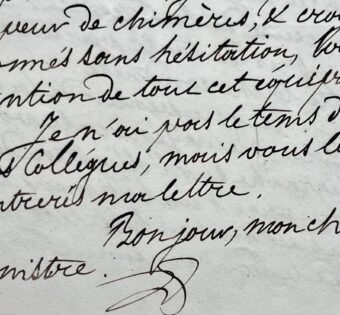 queur de chimères, & croi
onnés sans hésitation, Vo
ention de tout cet équipa
Je n'ai pas le tems d
s Collégues, mais vous le
ntrerés ma lettre.
Bonjour, mon ch
nistre.